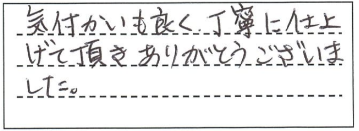 気付かいも良く、丁寧に仕上
げて頂きありがとうございま
した。